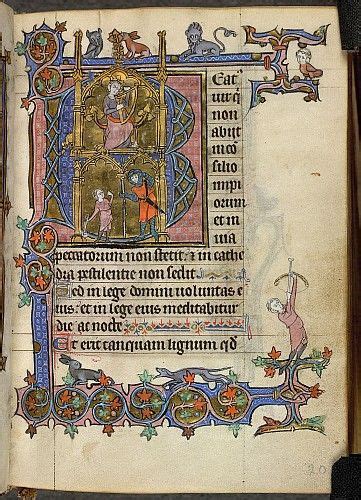 Beat
vir q
non
abijt
in co
silio
impi
orum
et in
uia
peccatorum non stetit: & in cathe
dra pestilentie non sedit
Sed in lege domini voluntas e
ius: et in lege eius meditabitur
die ac nocte
Et erit tanquam lignum qd